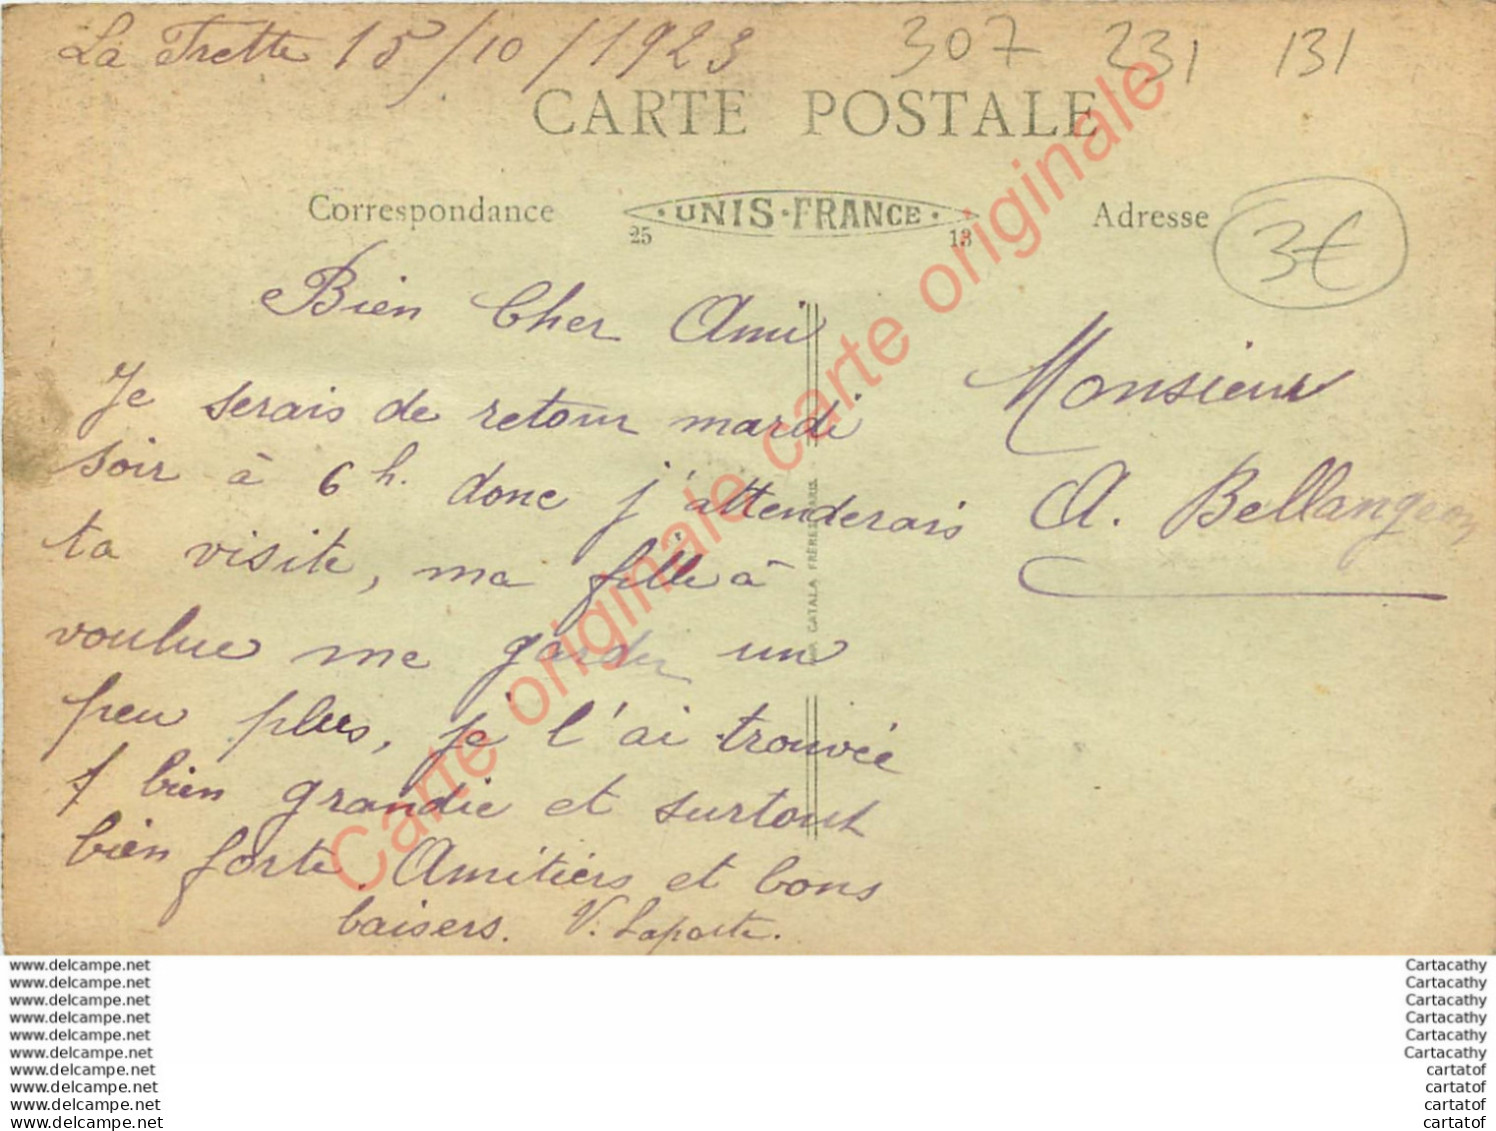 La Frette 15/10/1923
307 231 131
CARTE POSTALE
Correspondance
UNIS·FRANCE
25 13
Adresse
3€
Bien Cher Ami
Je serais de retour mardi
soir à 6 h. donc j'attenderais
ta visite, ma fille à
voulue me garder un
peu plus, je l'ai trouvée
bien grandie et surtout
bien forte. Amitiérs et bons
baisers. V. Laporte.
Monsieur
A. Bellangeon
CATALA FRÈRES PARIS
Carte originale carte originale
www.delcampe.net
www.delcampe.net
www.delcampe.net
www.delcampe.net
www.delcampe.net
www.delcampe.net
www.delcampe.net
www.delcampe.net
www.delcampe.net
www.delcampe.net
Cartacathy
Cartacathy
Cartacathy
Cartacathy
Cartacathy
Cartacathy
cartatof
cartatof
cartatof
cartatof